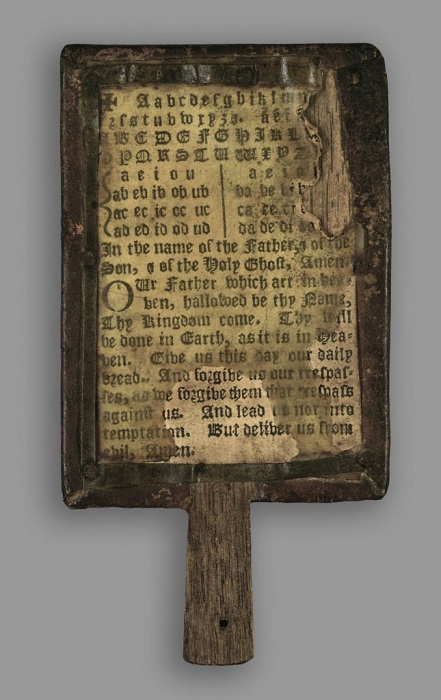 ✠ Aabcdefghiklmn
rſstuvwxyz. ãẽi
ABCDEFGHIKL
OPQRSTUWXYZ
a e i o u a e i o
ab eb ib ob ub ba be bi b
ac ec ic oc uc ca ce ci
ad ed id od ud da de di do
In the name of the Father, & of the
Son, & of the Holy Ghoſt, Amen.
OUr Father which art in hea-
ven, hallowed be thy Name,
Thy Kingdom come. Thy will
be done in Earth, as it is in Hea-
ven. Give us this day our daily
bread. And forgive us our treſpaſ-
ſes, as we forgive them that treſpaſs
againſt us. And lead us not into
temptation. But deliver us from
evil, Amen.